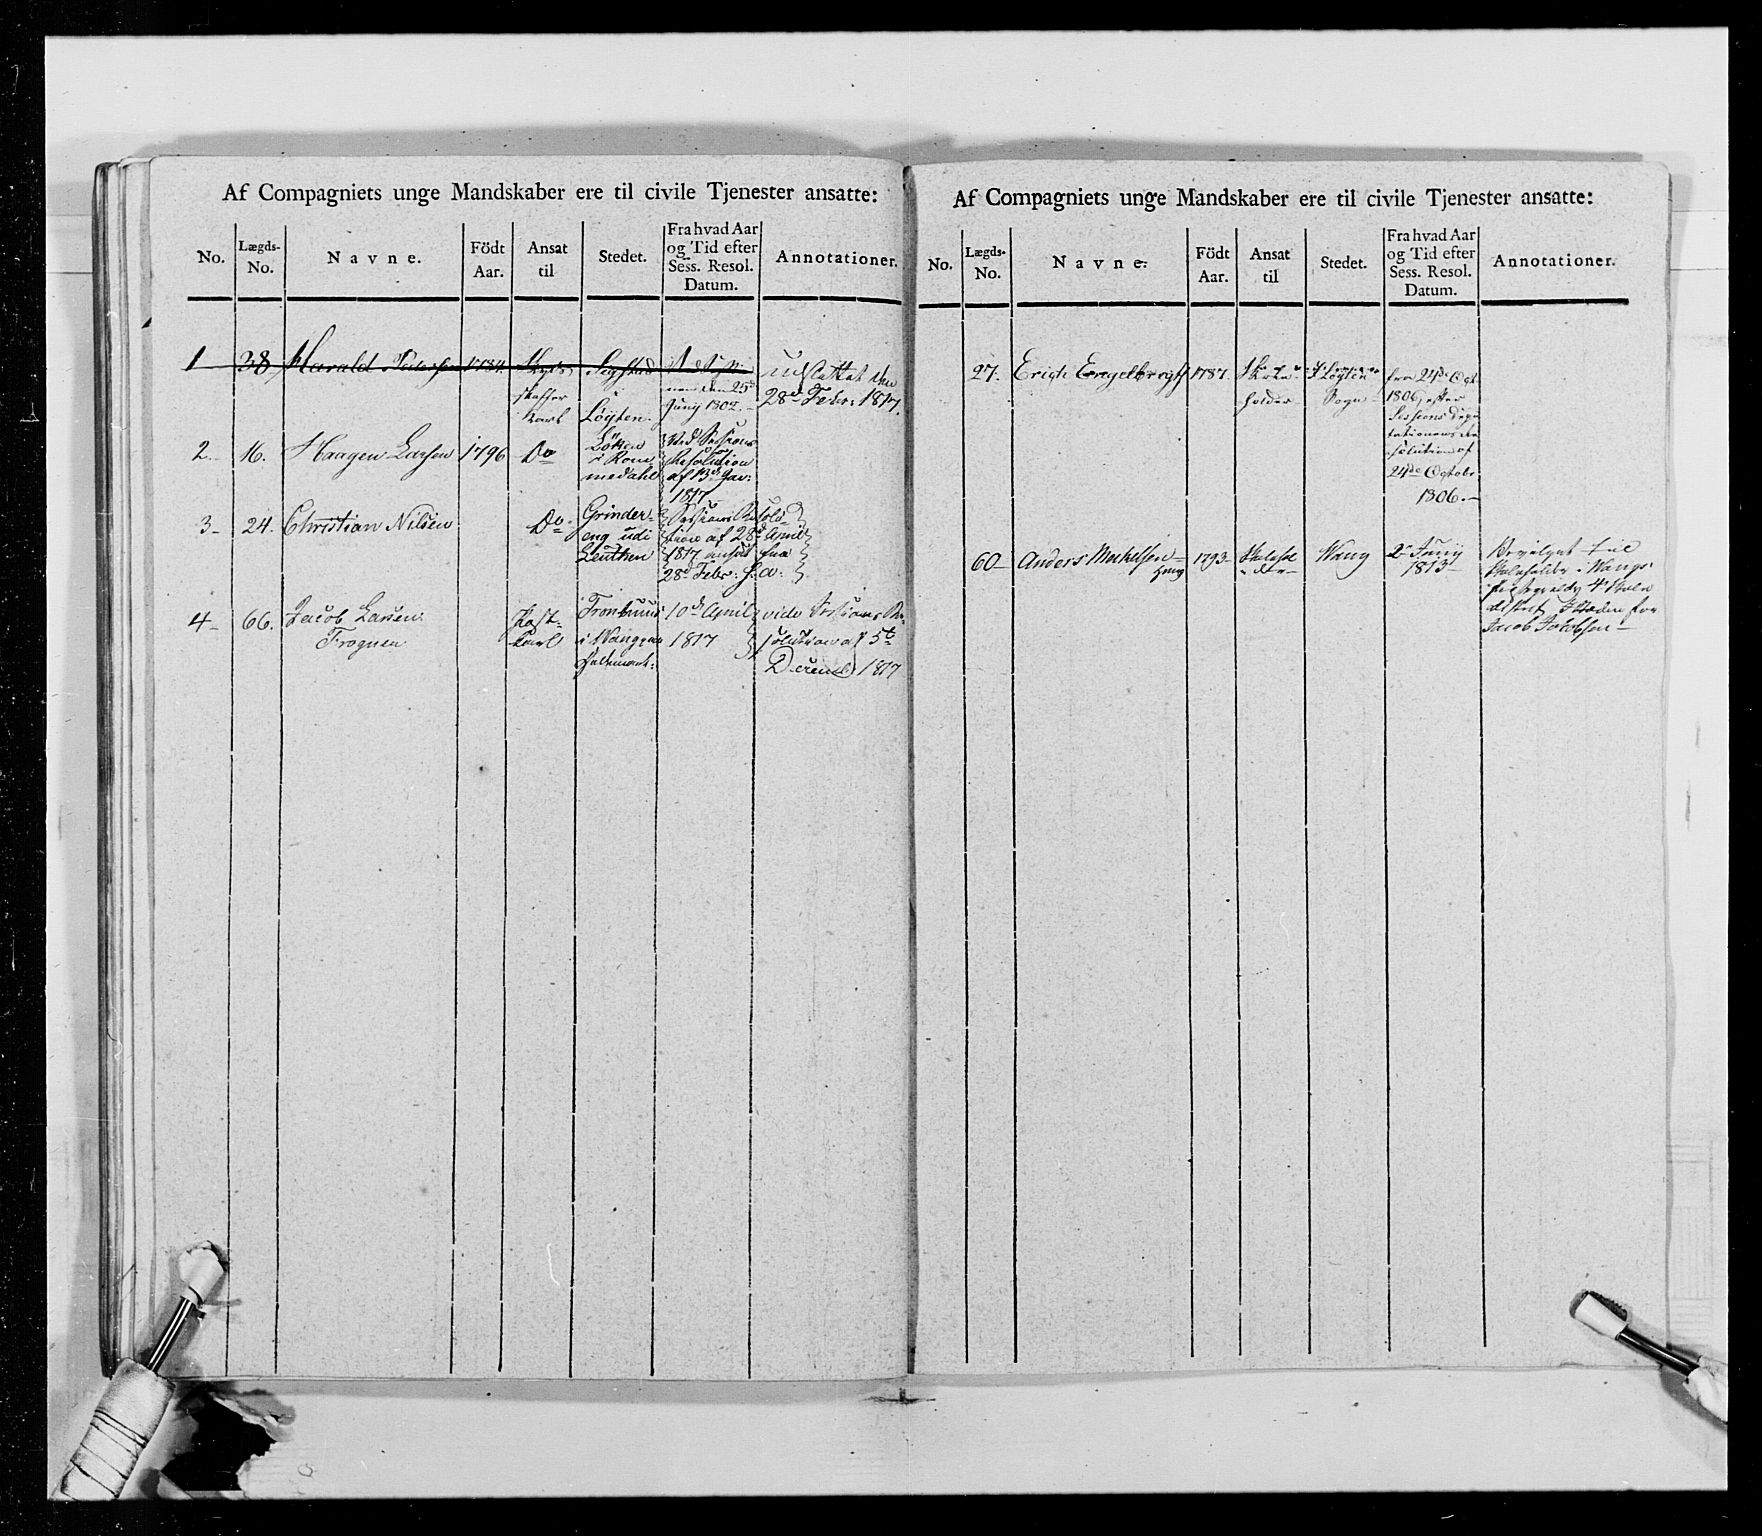 Af Compagniets unge Mandskaber ere til civile Tjenester ansatte:
No. Lægds-No. Navne. Födt Aar. Ansat til Stedet. Fra hvad Aar og Tid efter Sess. Resol. Datum. Annotationer.
1 38 Harald Pedersen 1784. Skyds
skaffer
karl
Sygstad
i
Löyten.
den 25de
Juny 1802.
udslettet den
28de Febr: 1817.
2. 16. Haagen Larsen 1796 Do
Löken
i Rom
medahl
Ved Sessions
Resolution
af 13de Jan:
1817
3 24. Christian Nilsen Do
Grinder
eng udi
Leuthen
Sessions Resolu
tion af 28de April
1817 ansat fra
28de Febr: s. a.
4 66. Jacob Larsen
Frognen
Post
karl
i Wang
10de April
1817
vide Sessions Re
solution af 5te
Decemb 1817
Af Compagniets unge Mandskaber ere til civile Tjenester ansatte:
No. Lægds-No. Navne. Födt Aar. Ansat til Stedet. Fra hvad Aar og Tid efter Sess. Resol. Datum. Annotationer.
27. Erich Engelbregts 1787. Skole
holder
I Löyten
Sogn
fra 24de Oct.
1806, efter
Sessions Depu
tationens Re
solution af
24de Octobr
1806.
60 Anders Mechelsen
Houg
1793 Skolehol
der
Wang
2n Juny
1813
Bevilget til
Skoleholder i Wangs
Præstegields 4de Skole
district I Steden for
Jacob Jakobsen